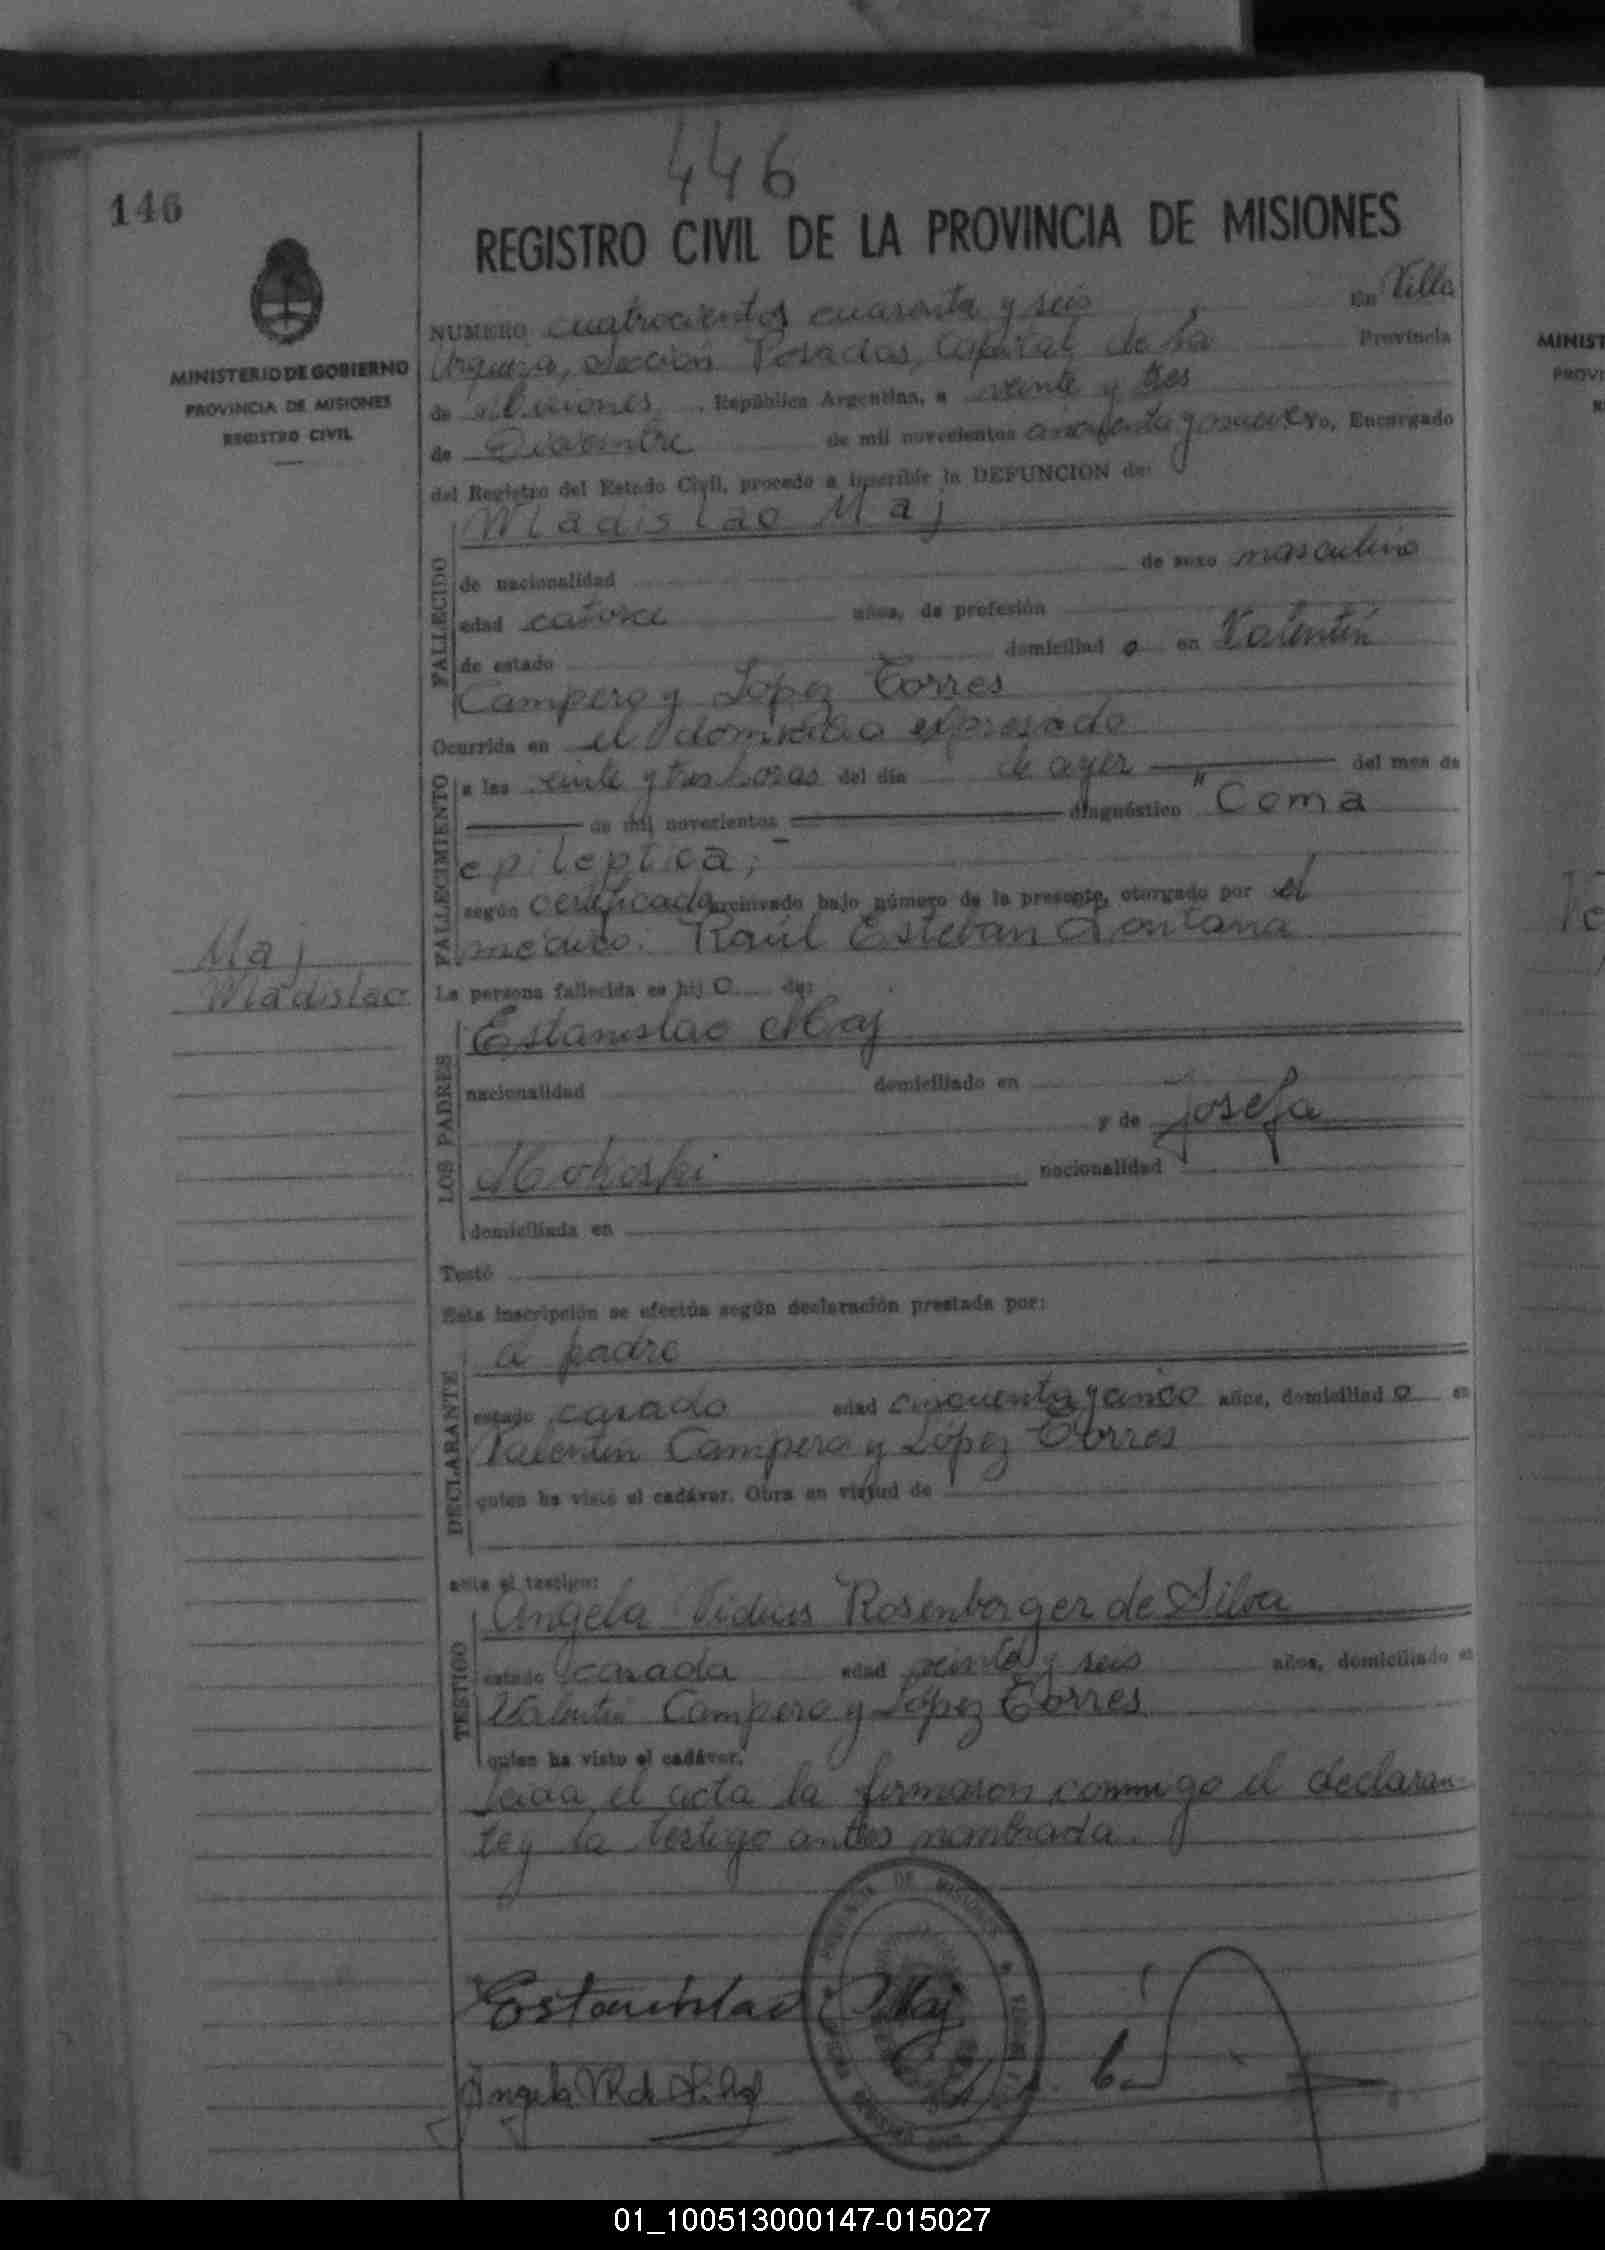 446
146
REGISTRO CIVIL DE LA PROVINCIA DE MISIONES
MINISTERIO DE GOBIERNO
PROVINCIA DE MISIONES
REGISTRO CIVIL
NUMERO cuatrocientos cuarenta y seis En Villa
Urquiza, sección Posadas, Capital de la Provincia
de Misiones, República Argentina, a veinte y tres
de Diciembre de mil novecientos cincuenta y nueve Yo, Encargado
del Registro del Estado Civil, procedo a inscribir la DEFUNCION de:
Wladislao Maj
FALLECIDO
de nacionalidad de sexo masculino
edad catorce años, de profesión
de estado domiciliad o en Valentín
Campero y López Torres
Ocurrida en el domicilio expresado
FALLECIMIENTO
a las veinte y tres horas del día de ayer del mes de
de mil novecientos diagnóstico "Coma
epileptica;
según certificado archivado bajo número de la presente, otorgado por el
médico: Raúl Esteban
Maj
Wladislao
La persona fallecida es hij o de:
LOS PADRES
Estanislao Maj
nacionalidad domiciliado en
y de Josefa
nacionalidad
domiciliada en
Testó
Esta inscripción se efectúa según declaración prestada por:
DECLARANTE
el padre
estado casado edad cincuenta y cinco años, domiciliad o en
Valentín Campero y López Torres
quien ha visto el cadáver. Obra en virtud de
ante el testigo:
TESTIGO
Angela Rosenberger de Silva
estado casada edad veinte y seis años, domiciliado en
Valentín Campero y López Torres
quien ha visto el cadáver.
Leida el acta la firmaron conmigo el declaran-
te y la testigo antes nombrada.
Estanislao Maj
Angela R de Silva
PROVINCIA DE MISIONES
MINIST
PROVI
R
01_100513000147-015027